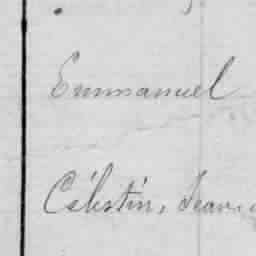 Emmanuel
Célestin, Jean